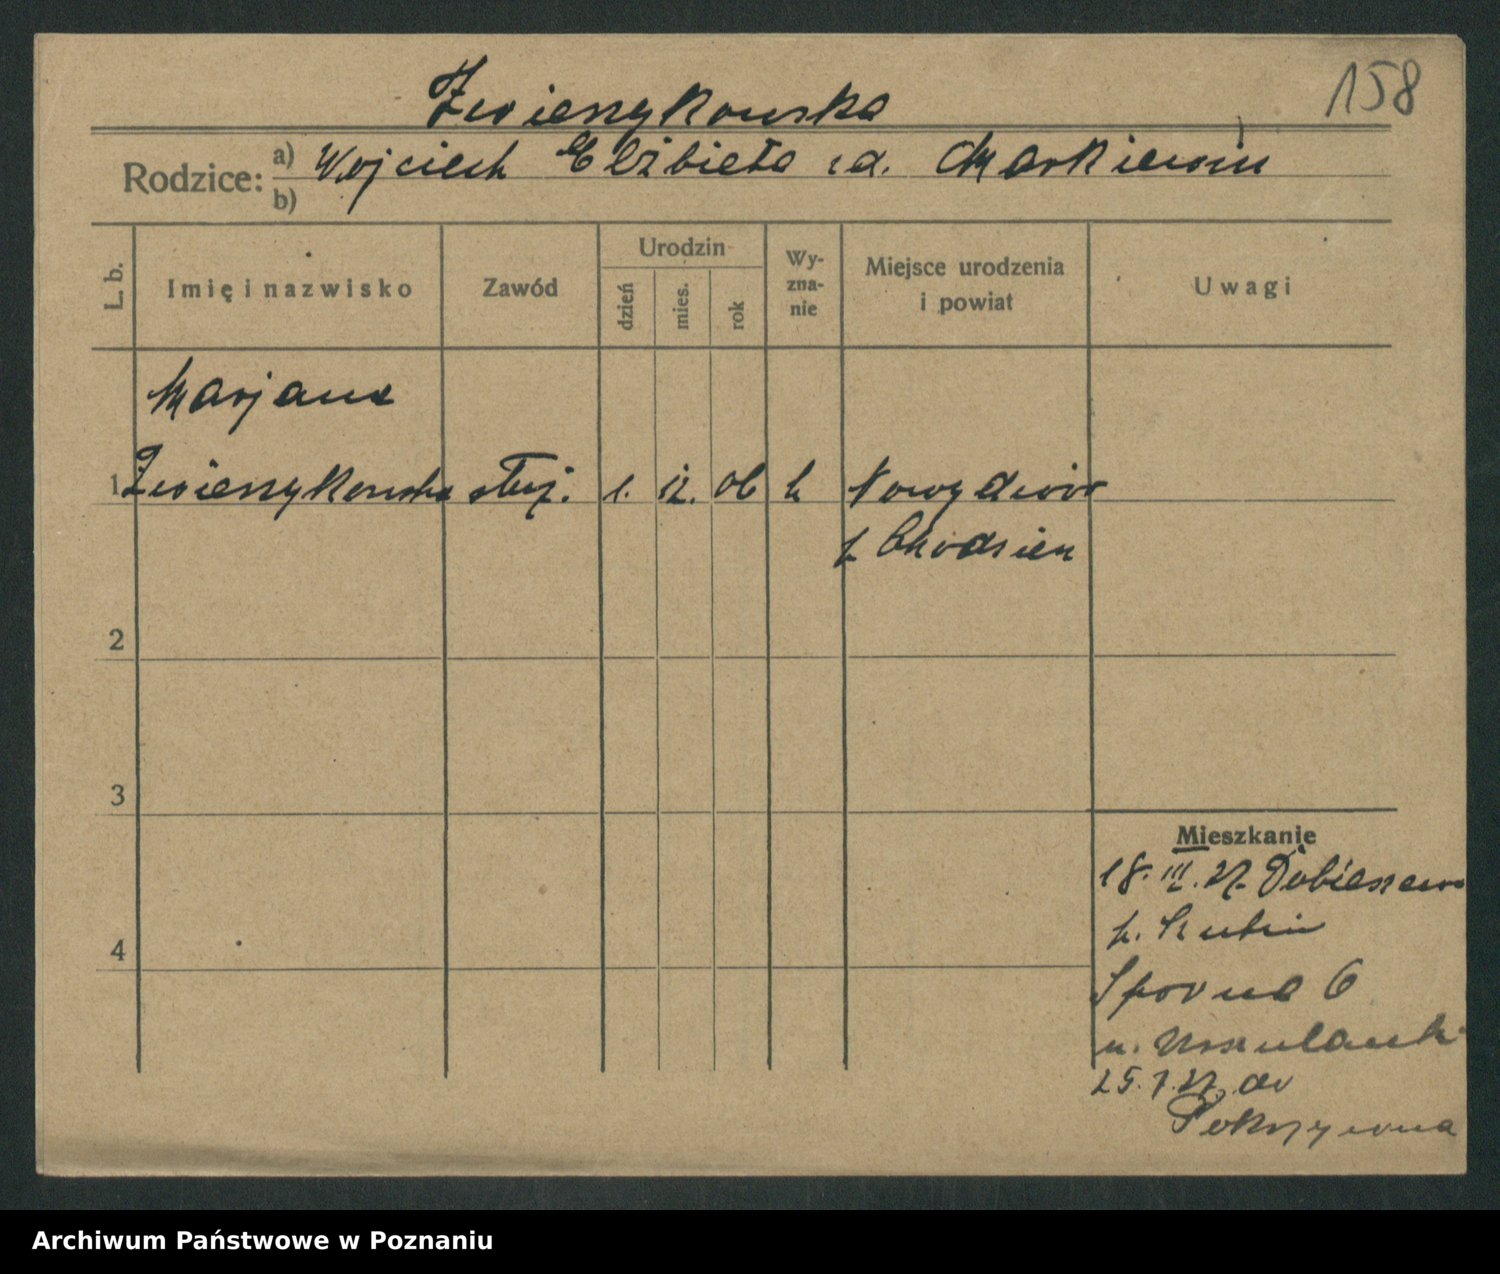 158
Zwierzykowska
Rodzice: a) Wojciech Elżbieta z d. Markiewicz
b)
L. b.
Imię i nazwisko
Zawód
Urodzin
dzień
mies.
rok
Wy-
zna-
nie
Miejsce urodzenia
i powiat
Uwagi
Marjanna
1 Zwierzykowska służ. 1. 06 k Nowy dwór
p. Chodzież
2
3
4
Mieszkanie
18. III. 27. Dobieszewo
p. Szubin
Sporna 6
u. Urszulanek
25. 7. 27. do
Pokrzywna
Archiwum Państwowe w Poznaniu